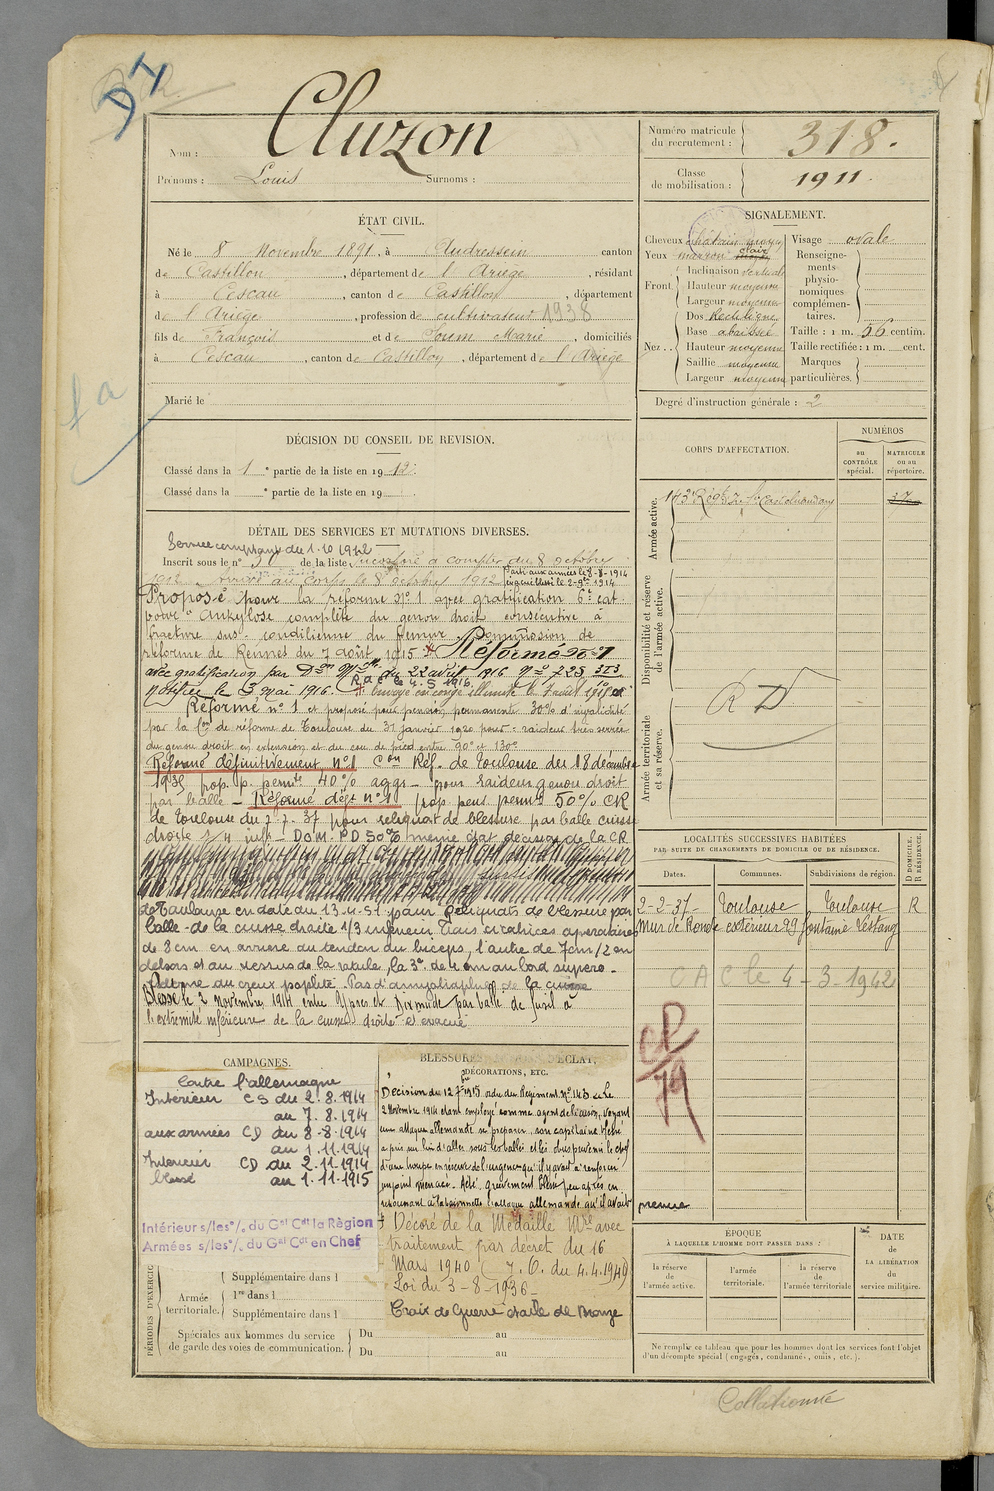 DI
Cluzon
Nom :
Prénoms : Louis Surnoms :
Numéro matricule du recrutement : 318.
Classe de mobilisation : 1911.
ÉTAT CIVIL.
Né le 8 Novembre 1891, à Audressein canton
de Castillon, département de l'Ariège, résidant
à Cescau, canton de Castillon, département
de l'Ariège, profession de cultivateur 1938
fils de François et de Soum Marie, domiciliés
à Cescau, canton de Castillon, département de l'Ariège
Marié le
SIGNALEMENT.
Cheveux châtain moyen
Yeux marron clair
Front. Inclinaison verticale
Hauteur moyenne
Largeur moyenne
Nez. Dos Rectiligne
Base abaissée
Hauteur moyenne
Saillie moyenne
Largeur moyenne
Visage ovale
Renseignements physionomiques complémentaires.
Taille : 1 m. 56 centim.
Taille rectifiée : 1 m. cent.
Marques particulières.
Degré d'instruction générale : 2
DÉCISION DU CONSEIL DE REVISION.
Classé dans la 1e partie de la liste en 1912.
Classé dans la e partie de la liste en 19
CORPS D'AFFECTATION.
NUMÉROS
au CONTRÔLE spécial.
MATRICULE ou au répertoire.
Armée active.
143e Régt d'Inf. Castelnaudary
Disponibilité et réserve de l'armée active.
Armée territoriale et sa réserve.
R D
DÉTAIL DES SERVICES ET MUTATIONS DIVERSES.
Service comptant du 1-10 1912
Inscrit sous le n° 30 de la liste Incorporé à compter du 8 octobre
1912 Arrivé au corps le 8 octobre 1912 Parti aux armées le 8-8-1914
Proposé pour la réforme N° 1 avec gratification 6e cat.
pour " Ankylose complète du genou droit consécutive à
fracture sus-condilienne du fémur. Commission de
réforme de Rennes du 7 août 1915 Réformé N° 1
avec gratification par Don Mlle du 22 avril 1916 N° 725
notifiée le 3 mai 1916. R a C le 4.5.1916.
envoyé en congé illimité le 7 août 1915
Réformé n° 1 et proposé pour pension permanente 30% d'invalidité
par la Con de réforme de Toulouse du 31 janvier 1920 pour : raideur très serrée
du genou droit en extension et du cou de pied entre 90° et 130°
Réformé définitivement N° 1 Con Réf. de Toulouse du 18 décembre
1935 prop. p. permte 40% aggr - pour raideur genou droit
par balle - Réformé déft N° 1 prop pens. permte 50% CR
de Toulouse du 7-7-37 pour reliquat de blessure par balle cuisse
droite 1/4 infr - DOM-PD 50% même état décision de la CR
de Toulouse en date du 13-4-51 pour Reliquats de blessure par
balle de la cuisse droite 1/3 inférieur Trois cicatrices opératoires
de 8 cm en arrière du tendon du biceps, l'autre de 7cm 1/2 en
dehors et au dessus de la rotule, la 3e de 4 cm au bord supéro-
externe du creux poplité. Pas d'amyotrophie de la cuisse
Blessé le 2 Novembre 1914 entre Ypres et Dixmude par balle de fusil à
l'extrémité inférieure de la cuisse droite et évacué
LOCALITÉS SUCCESSIVES HABITÉES
PAR SUITE DE CHANGEMENTS DE DOMICILE OU DE RÉSIDENCE.
Dates. Communes. Subdivisions de région. D DOMICILE. R RÉSIDENCE.
2-2-37- Toulouse Toulouse R
Mur de Ronde extérieur 29 fontaine Lestang
C A C le 4-3-1942
CD
79
CAMPAGNES.
Contre l'allemagne
Intérieur CS du 2.8.1914
au 7.8.1914
aux armées CD du 8-8-1914
au 1.11.1914
Intérieur CD du 2.11.1914
blessé au 1.11.1915
Intérieur s/les°/. du Gal Cdt la Région
Armées s/les°/. du Gal Cdt en Chef
BLESSURES, ÉCLAT,
DÉCORATIONS, ETC.
Décision du 12 1915 ordre du Régiment N° 143 Le
2 Novembre 1914 étant employé comme agent de liaison, voyant
une attaque allemande se préparer, son capitaine blessé
a pris sur lui d'aller sous les balles et les obus prévenir le chef
d'une troupe en réserve de l'urgence qu'il y avait à renforcer
un point menacé. A été grièvement blessé peu après en
repoussant à la baïonnette l'attaque allemande qu'il avait
prévue
Décoré de la Médaille Mre avec
traitement par décret du 16
Mars 1940 (J.O. du 4.4.1940)
Loi du 3-8-1936-
Croix de Guerre étoile de Bronze
PÉRIODES D'EXERCIC
Armée territoriale.
Supplémentaire dans l
1re dans l
Supplémentaire dans l
Spéciales aux hommes du service de garde des voies de communication.
Du au
Du au
ÉPOQUE
À LAQUELLE L'HOMME DOIT PASSER DANS :
la réserve de l'armée active.
l'armée territoriale.
la réserve de l'armée territoriale
DATE DE LA LIBÉRATION du service militaire.
Ne remplir ce tableau que pour les hommes dont les services font l'objet
d'un décompte spécial (engagés, condamnés, omis, etc.).
Collationné